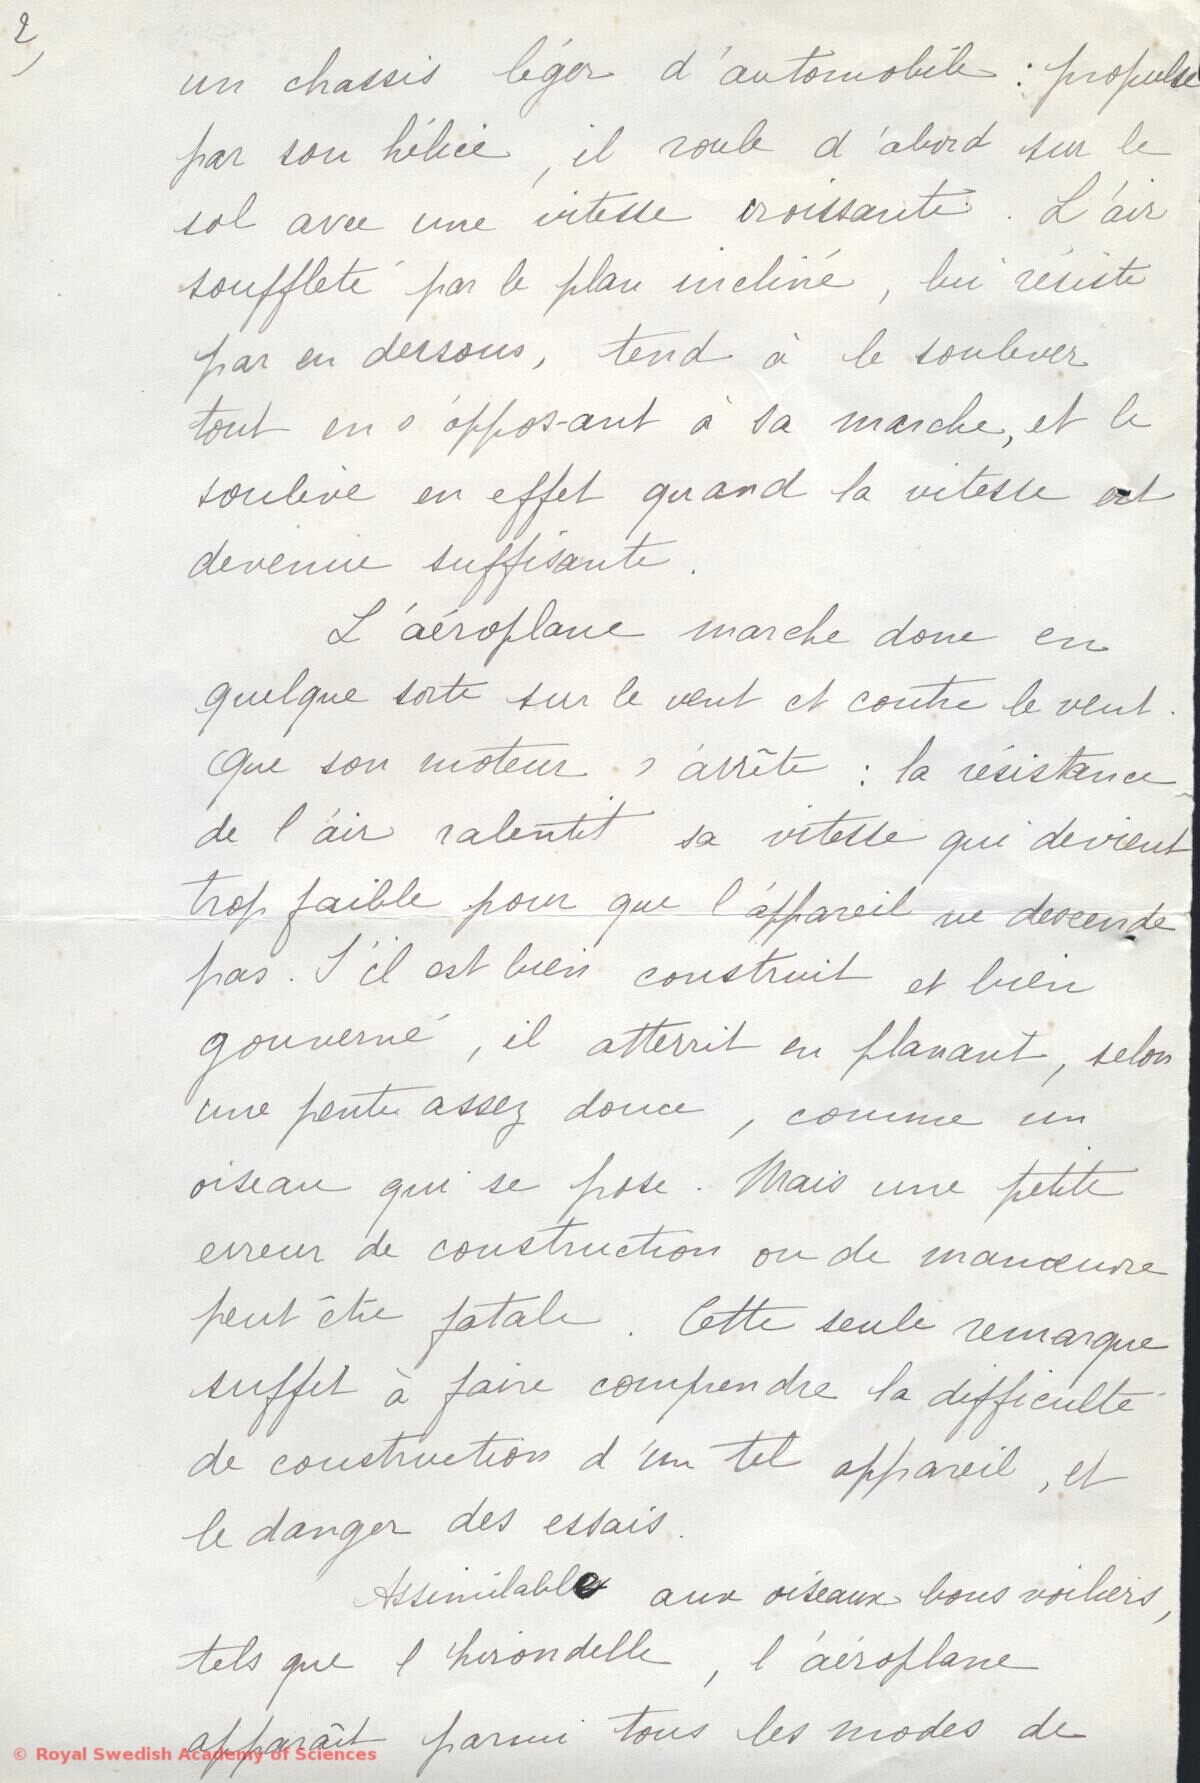 2,
un chassis léger d'automobile : propulsé
par son hélice, il roule d'abord sur le
sol avec une vitesse croissante. L'air
souffleté par le plan incliné, lui résiste
par en dessous, tend à le soulever
tout en s'opposant à sa marche, et le
soulève en effet quand la vitesse est
devenue suffisante.
L'aéroplane marche donc en
quelque sorte sur le vent et contre le vent.
Que son moteur s'arrête : la résistance
de l'air ralentit sa vitesse qui devient
trop faible pour que l'appareil ne descende
pas. S'il est bien construit et bien
gouverné, il atterrit en planant, selon
une pente assez douce, comme un
oiseau qui se pose. Mais une petite
erreur de construction ou de manœuvre
peut être fatale. Cette seule remarque
suffit à faire comprendre la difficulté
de construction d'un tel appareil, et
le danger des essais.
Assimilable aux oiseaux bons voiliers,
tels que l'hirondelle, l'aéroplane
apparaît parmi tous les modes de
© Royal Swedish Academy of Sciences